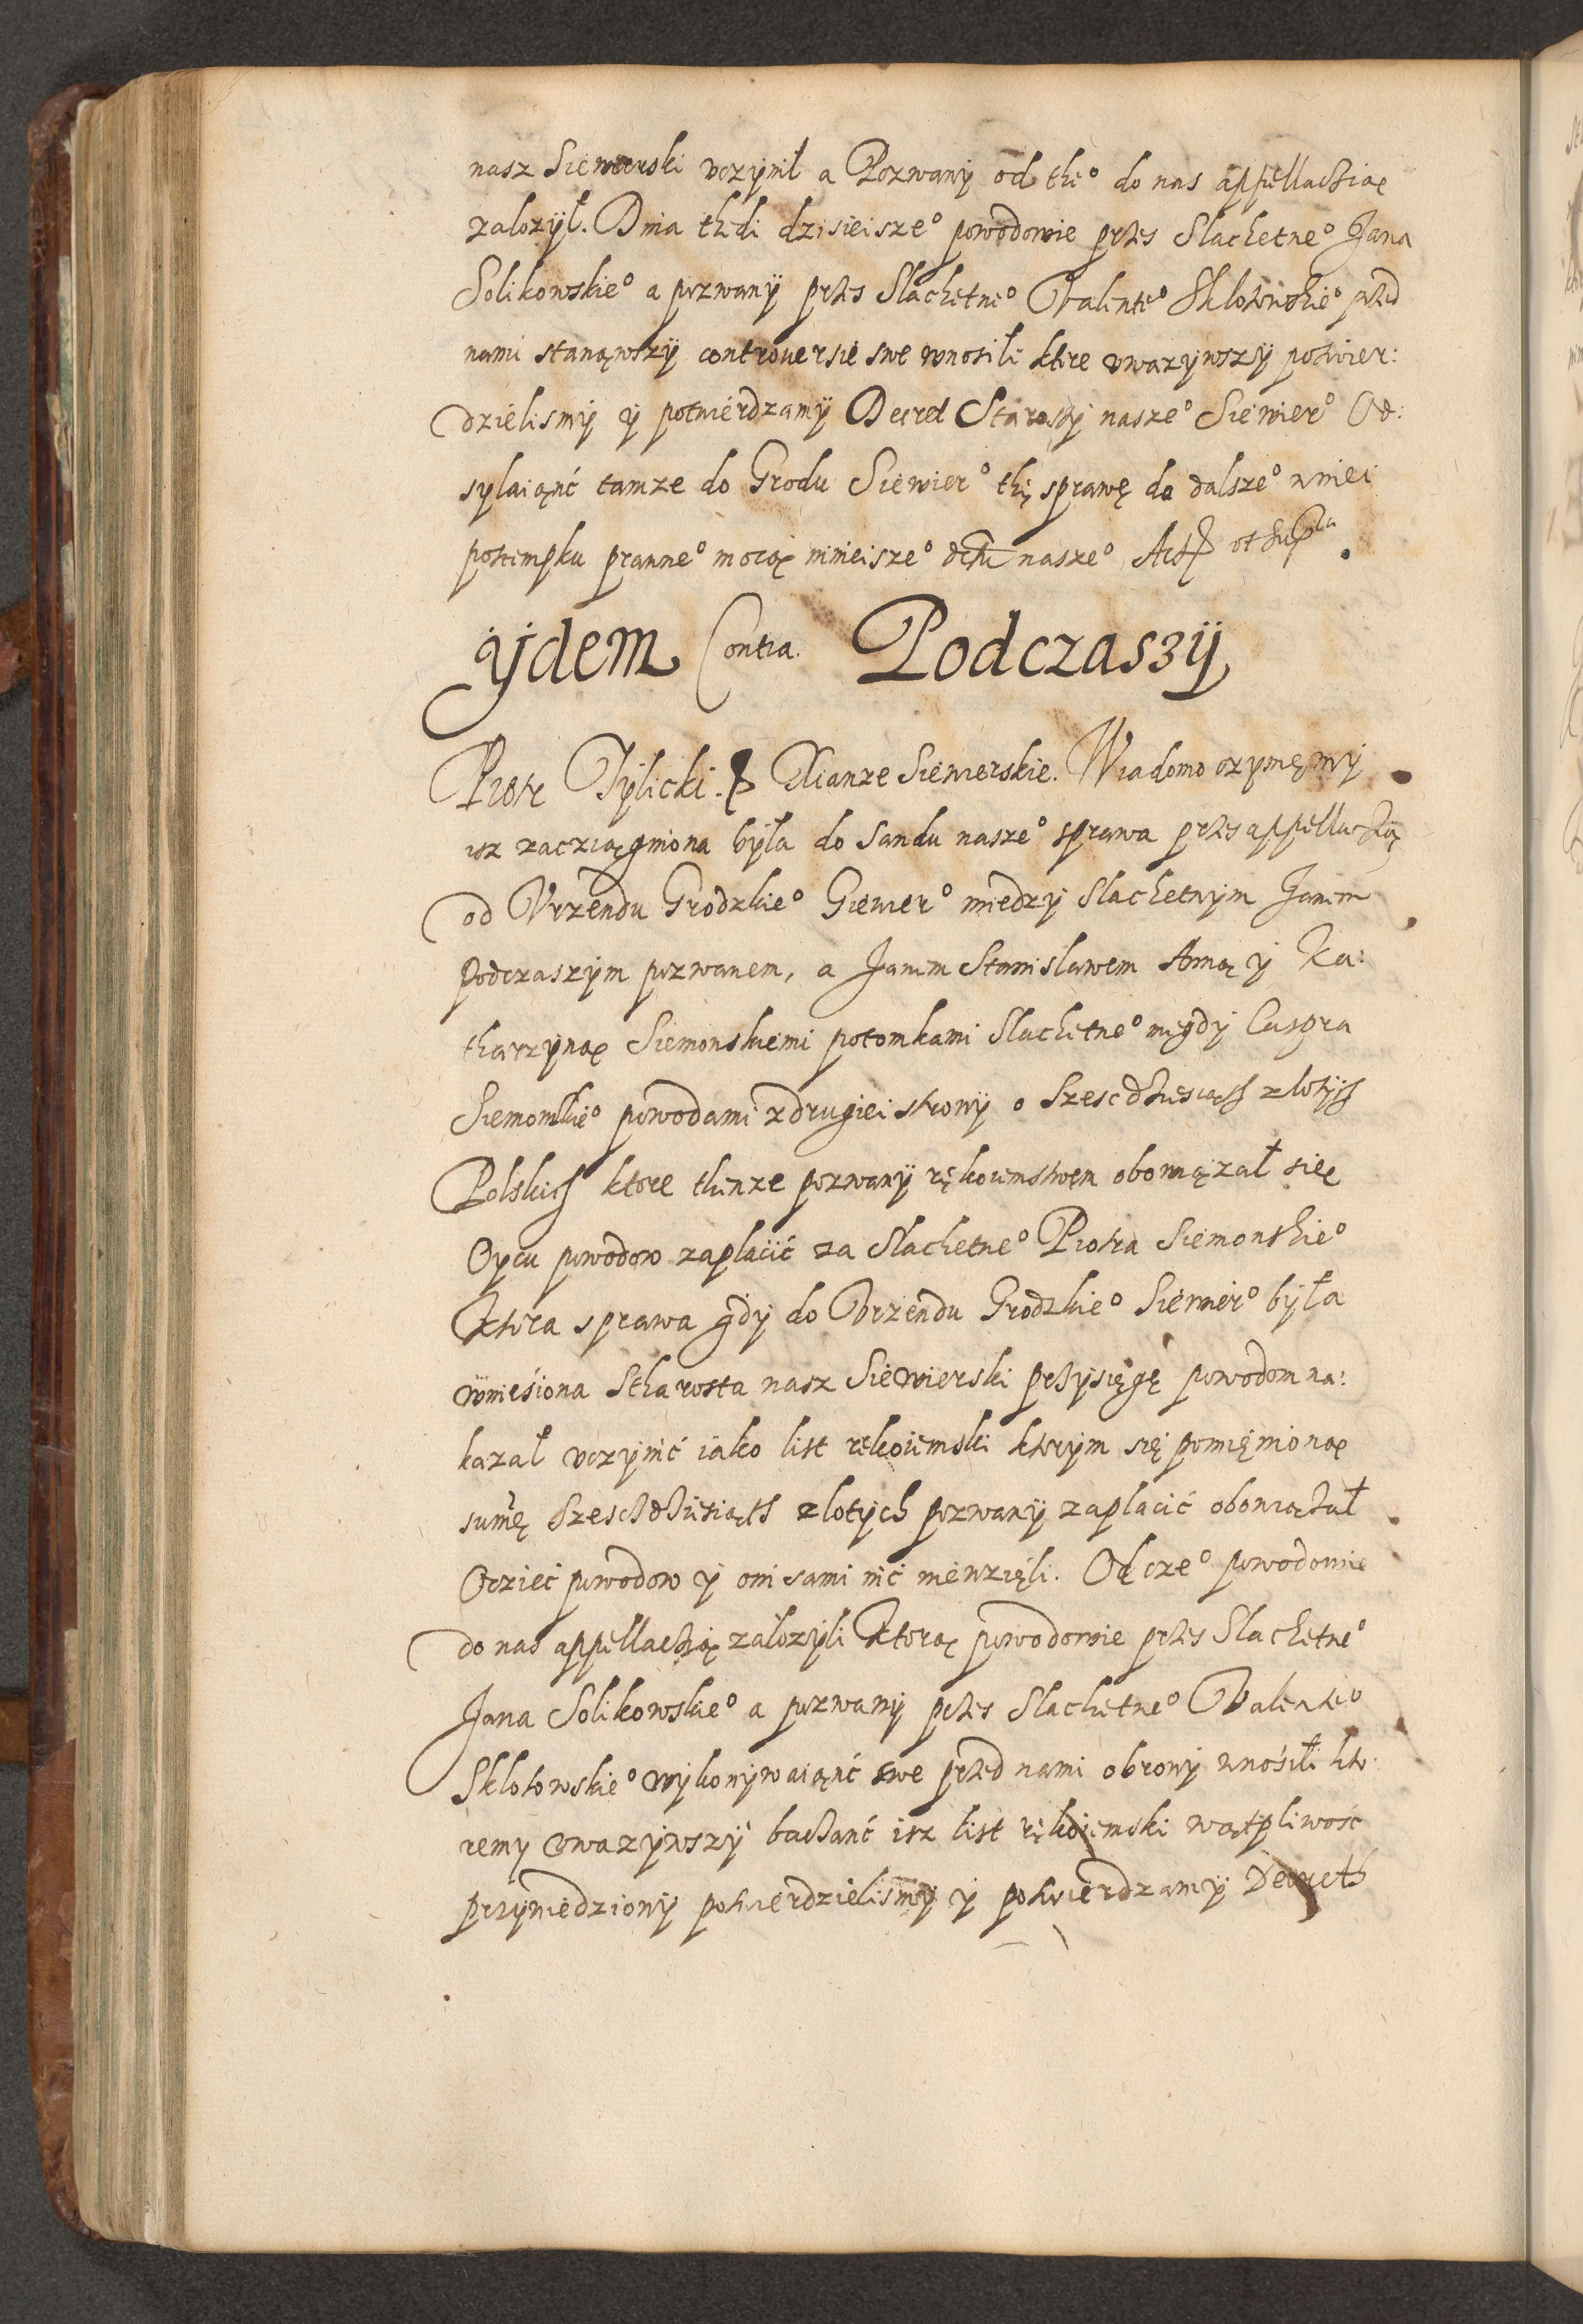 nasz Siewierski vczynił a Pozwany od the° do nas appellacziaę
zalozył. Dnia thedi dzisieisze° powodowie przes Slachetne° Jana
Solikowskie° a pozwany przes Slachetne° Valente° Sklotowskie° przed
nami stanąwszy controuersie swe wnosili ktore vwazywszy potwier:
dzielismy y potwierdzamy Decret Starosty nasze° Siewier° Od:
sylaiąnć tamze do Grodu Siewier° thę sprawę do dalsze° w niei
postempku prawne° mocaę ninieisze° dctu nasze° Act
yidem Contra. Podczaszy
Piotr Tylicki. Xianze Siewierskie. Wiadomo czynięmy
isz zacziaęgniona była do Sandu nasze° sprawa przes appellaczią
od Vrzendu Grodzkie° Siewier° miedzy Slachetnym Janem
Podczaszym pozwanem, a Janem Stanislawem Anną y Ka:
tharzynaę Siemonskiemi potomkami Slachetne° niegdy Caspra
Siemonskie° powodami z drugiei strony o szescdziesiąth złotych
Polskich ktore thenze pozwany rękoiemstwem obowiązał siię
Oycu powodow zaplacić za Slachetne° Piotra Siemonskie°
Ktora sprawa gdy do Vrzendu Grodzkie° Siewier° była
wniesiona Starosta nasz Siewierski przysięgę powodom na:
kazał vczynić iako list rekoiemski ktorym się pomienionaę
summę szesczdziesiąth zlotych pozwany zaplacić obowiązał
Oczieć powodow y oni sami nić niewzięli. Od cze° powodowie
do nas appellacziaę założyli Ktoraę powodowie przes Slachetne°
Jana Solikowskie° a pozwany przes Slachetne° Valente°
Sklotowskie° wykonywaiąnć swe przed nami obrony wnosili kto:
remy vwazywszy baczanć isz list rękoiemski wątpliwość
przywiedziony potwierdzielismy y potwierdzamy Decreth